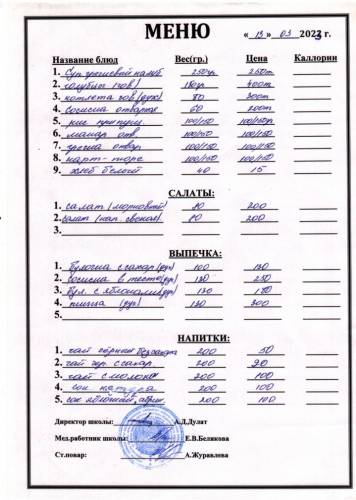 МЕНЮ « 13 » 03 2023 г.
Название блюд Вес(гр.) Цена Каллории
1. Суп гречневый 250гр 250т
2. голубцы (гов) 180гр 400т
3. котлета гов (дук) 80 300т
4. сосиска отварная 60 200т
5. рис припущ. 100/150 100/150гр
6. макар отв. 100/150 100/150
7. гречка отвар 100/150 100/150
8. карт-пюре 100/150 100/150
9. хлеб белый 40 15
САЛАТЫ:
1. салат (морковный) 80 200
2. салат (кап. свекла) 80 200
3.
ВЫПЕЧКА:
1. булочка с сахар (дук) 100 130
2. сосиска в тесте (дук) 130 250
3. бул. с яблоками (дук) 130 180
4. пицца (дук) 130 300
5.
НАПИТКИ:
1. чай черный без сахара 200 50
2. чай чер. с сахар 200 90
3. чай с молоком 200 100
4. сок 200 100
5. сок яблочный, абрик 200 100
Директор школы: А.Д.Дулат
Мед.работник школы: Е.В.Белякова
Ст.повар: А.Журавлева